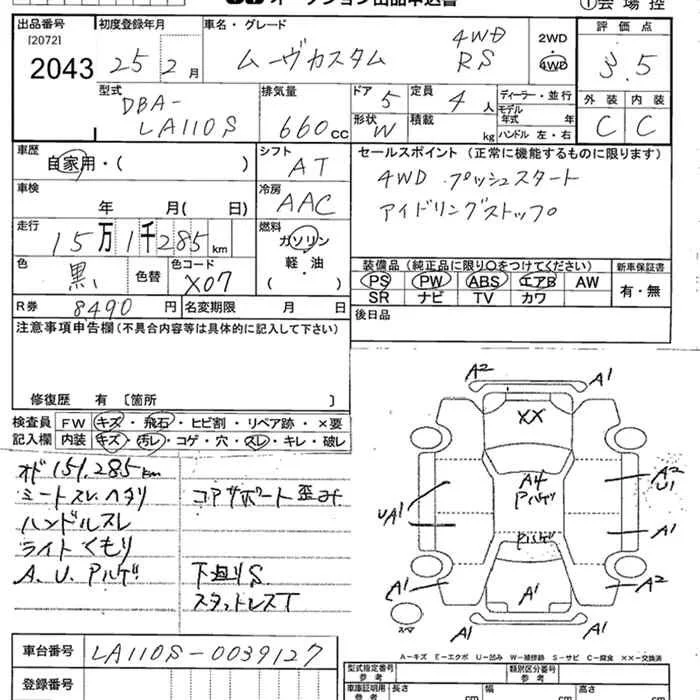 オークション出品申込書
①会場控
出品番号 初度登録年月 車名・グレード 評価点
[2072]
2043 25年2月 ムーヴカスタム 4WD RS 2WD 4WD 3.5
型式 排気量 ドア 定員 ディーラー・並行 外装 内装
DBA-LA110S 660cc 5 4人 モデル年式 年 C C
形状 W 積載 kg ハンドル 左・右
車歴 シフト セールスポイント (正常に機能するものに限ります)
自家用・( ) AT 4WD プッシュスタート
車検 冷房 アイドリングストップ
年 月(日) AAC
走行 燃料
15万1千285km ガソリン
軽・油
色 色替 色コード 装備品(純正品に限り〇をつけてください) 新車保証書
黒 X07 PS PW ABS エアB AW 有・無
SR ナビ TV カワ
R券 8490円 名変期限 月 日 後日品
注意事項申告欄(不具合内容等は具体的に記入して下さい)
修復歴 有 [箇所 ]
検査員 FW キズ・飛石・ヒビ割・リペア跡・×要
記入欄 内装 キズ・汚レ・コゲ・穴・スレ・キレ・破レ
オド151.285km
シートスレヘタリ コアサポート歪み
ハンドルスレ
ライトくもり
A.U.Pハゲ 下廻りS
スタットレスT
A2 A1
XX
A4 Pハゲ A2 U1
UA1
Pハゲ A1
A1 A1 A2
スマ A1 A1
A-キズ E-エクボ U-凹み W-補修跡 S-サビ C-腐食 ××-交換済
車台番号 LA110S-0039127
登録番号
型式指定番号 参考 類別区分番号 参考
車庫証明用 参考 長さ cm 幅 cm 高さ cm